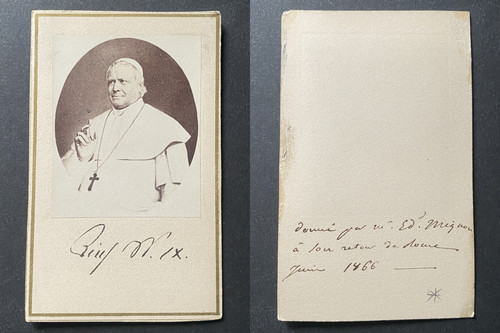 Pius P. IX.
donné par mr. Edd. Mignon
à son retour de Rome
Juin 1866 —
*